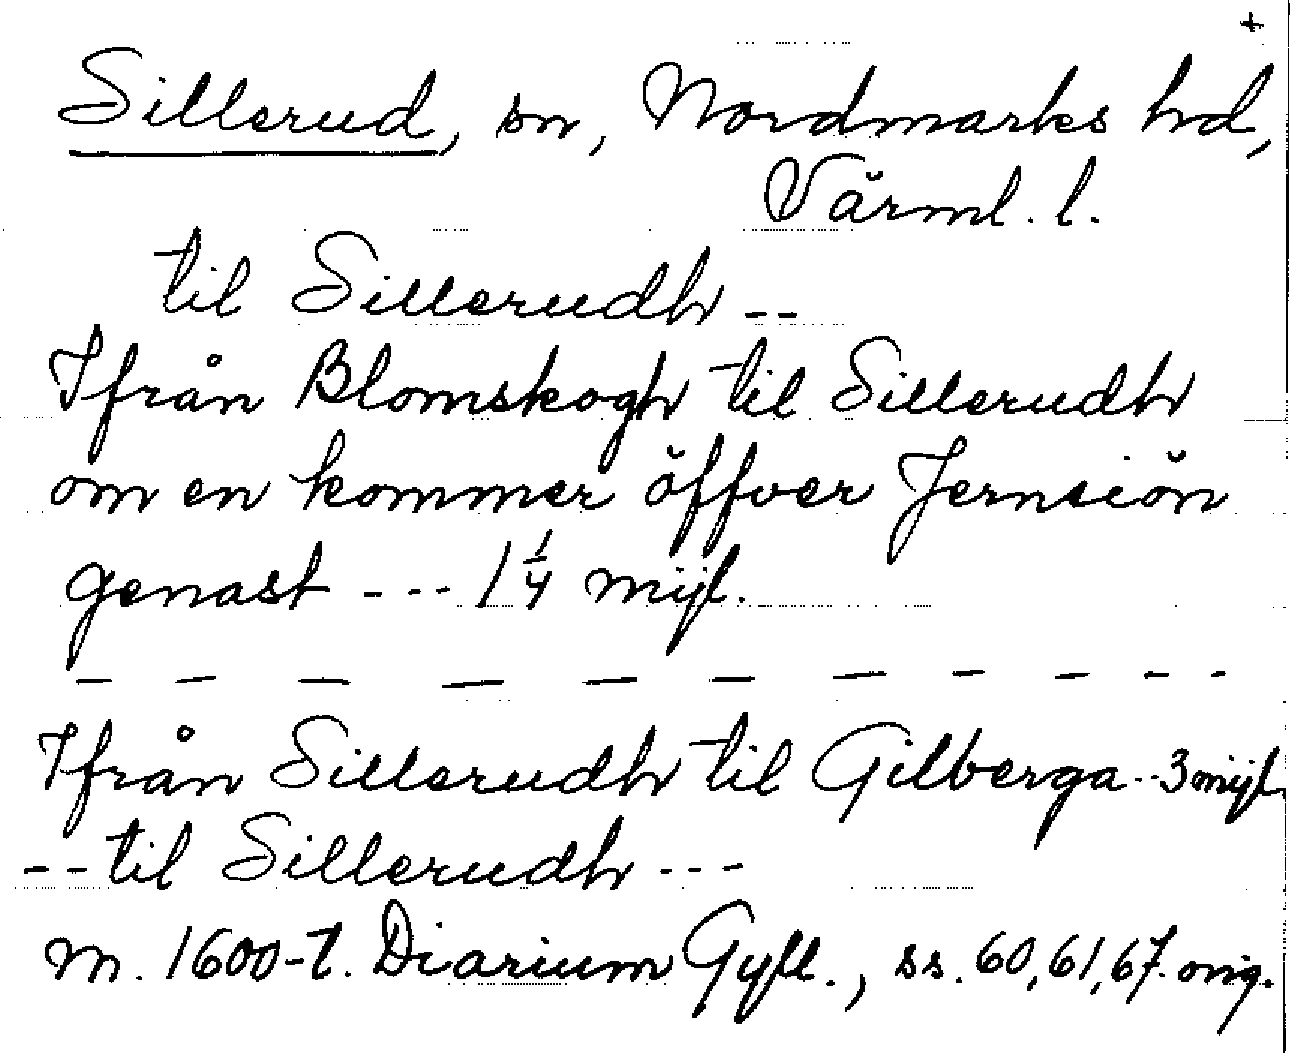 +
Sillerud, sn, Nordmarks hd,
Värml. l.
til Sillerudh --
Ifrån Blomskogh til Sillerudh
om en kommer öffver Jernsiön
genast --- 1 1/4 mijl.
— — — — — — — — — - -
Ifrån Sillerudh til Gilberga -- 3 mijl.
-- til Sillerudh ---
m. 1600-t. Diarium Gyll., ss. 60, 61, 67. orig.